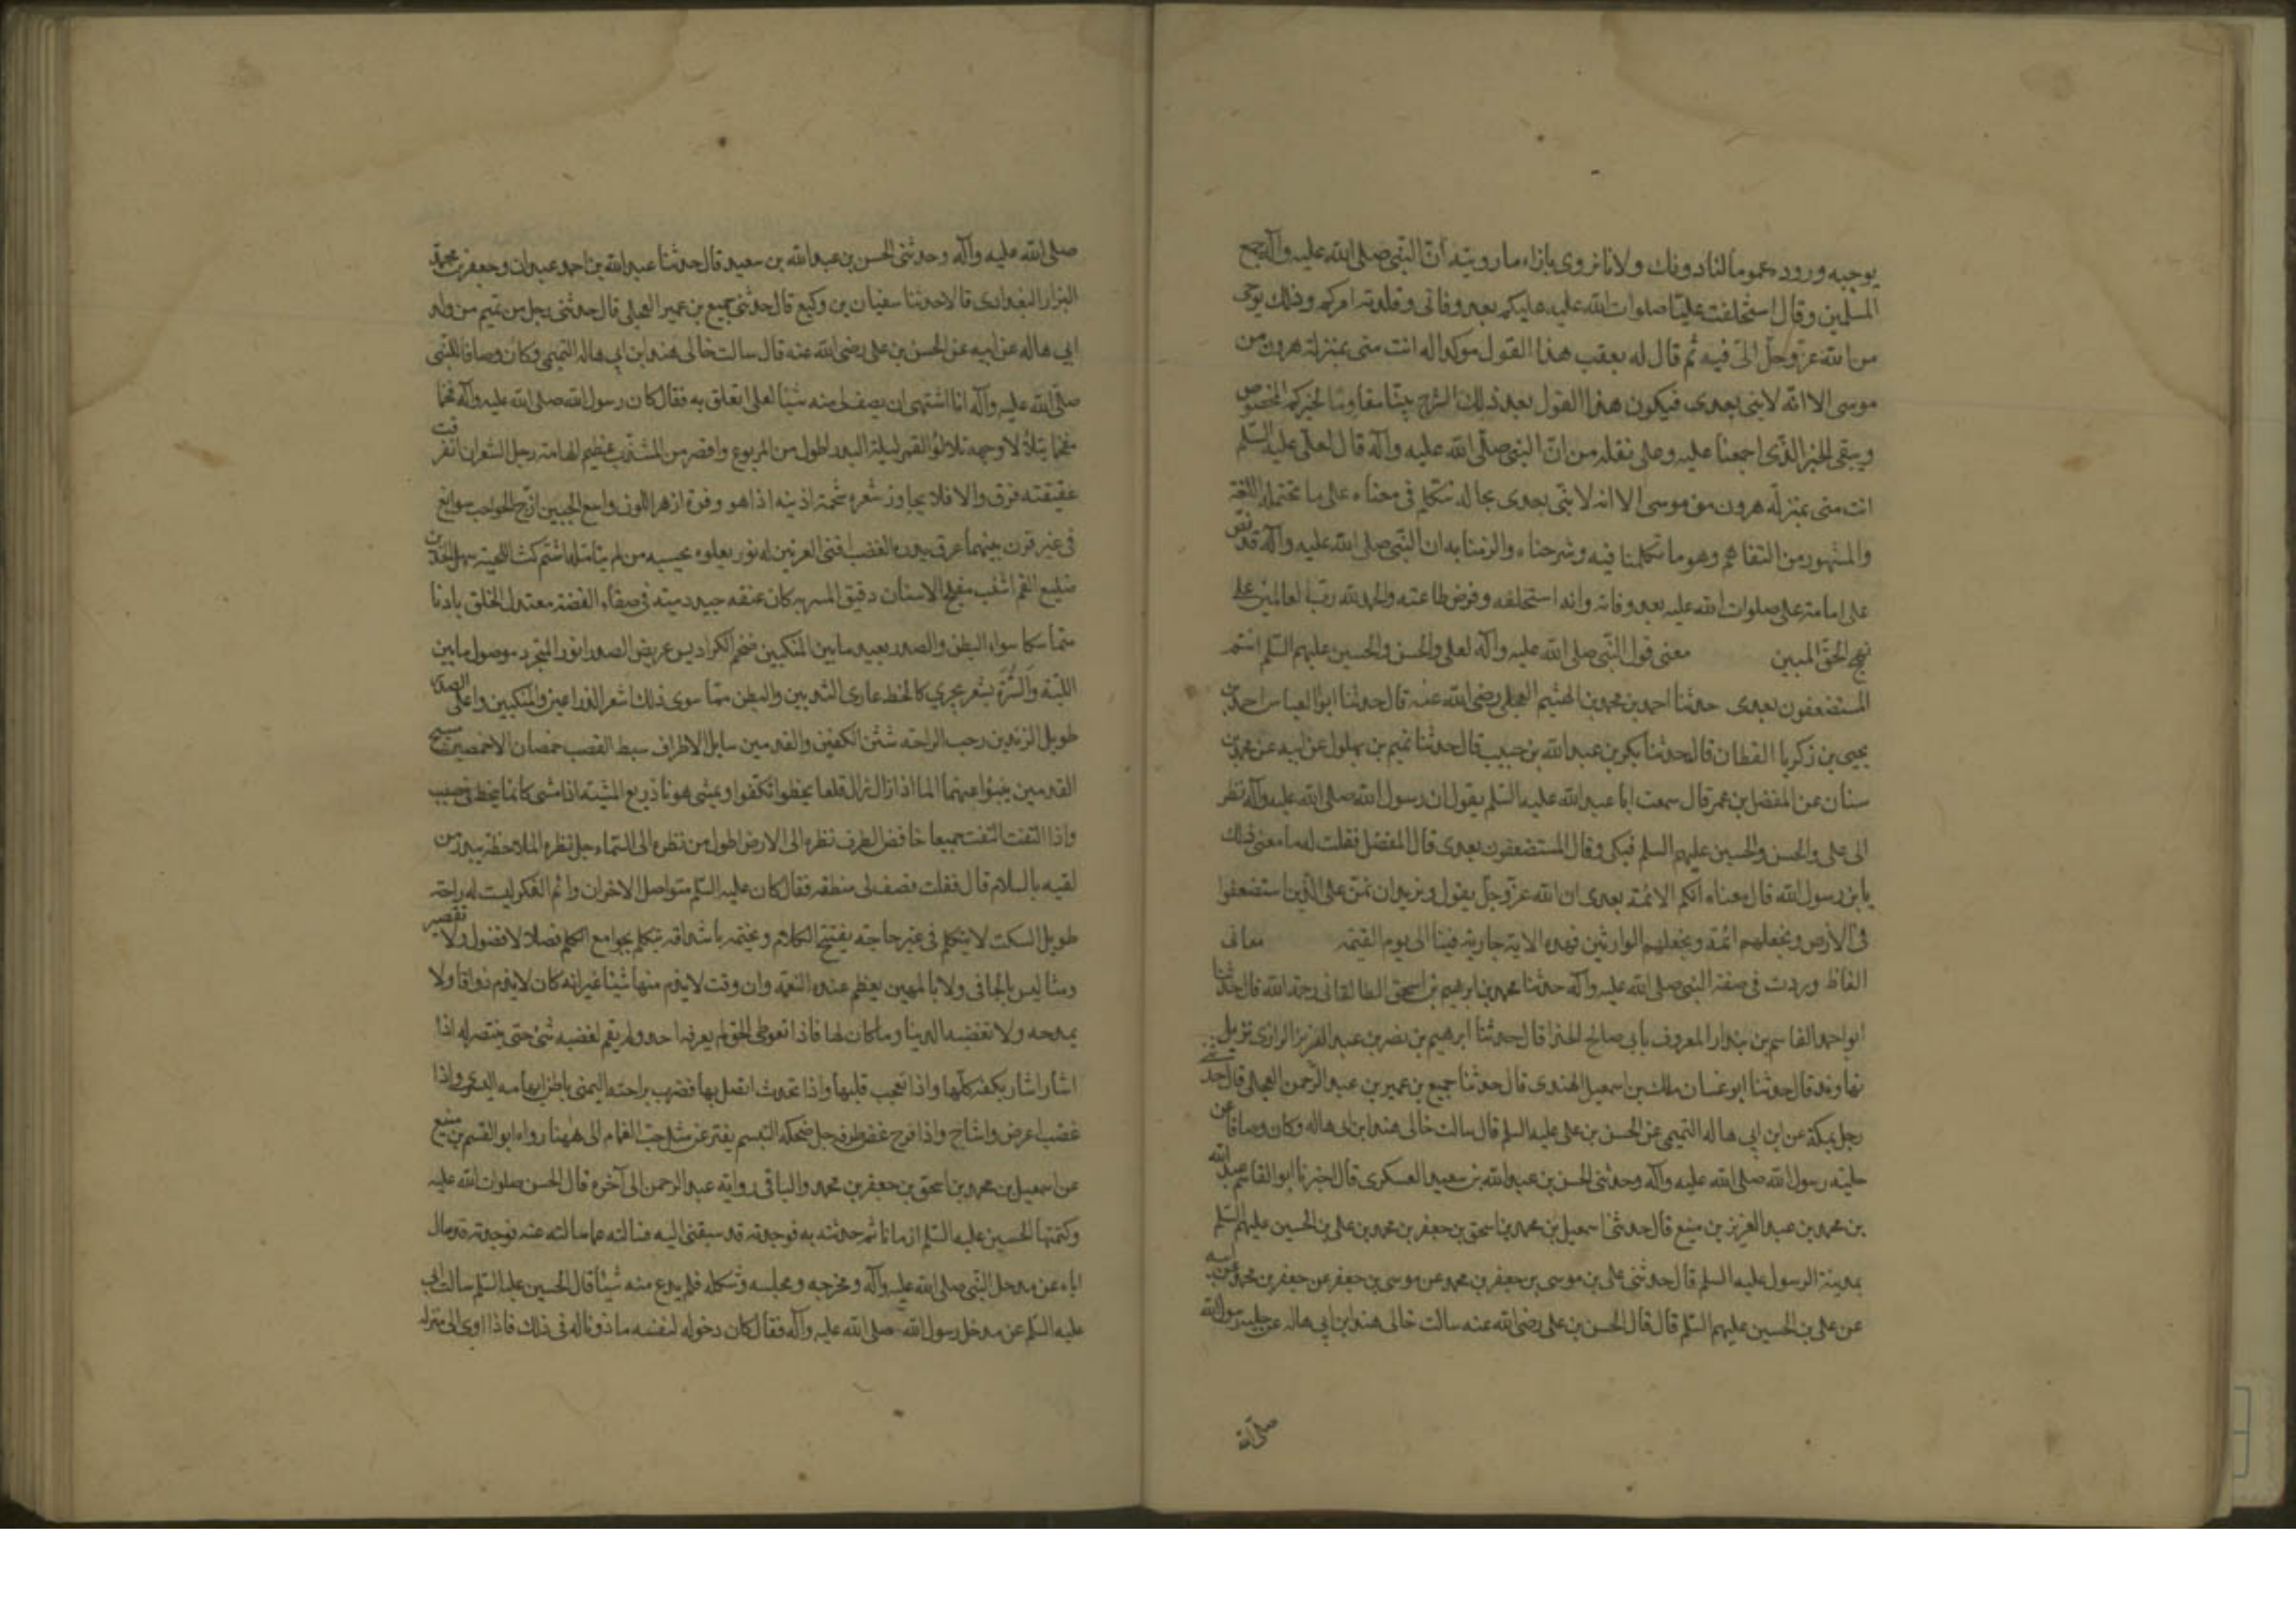 يوجبه وروده عموما لنا دونك ولانا نروى بازاء ما رويته ان النبى صلى الله عليه وآله جمع
المسلمين وقال استخلفت عليّا صلوات الله عليه عليكم بعد وفاتى وقلدته امركم وذلك بوحى
من الله عزّ وجلّ الىّ فيه ثم قال له بعقب هذا القول موكدا له انت منى بمنزلة هرون من
موسى الا انّه لا نبى بعدى فيكون هذا القول بعد ذلك الشرح بيّنا مقاوما لخبركم المخصوص
ويبقى الخبر الذى اجمعنا عليه وعلى نقله من انّ النبى صلّى الله عليه وآله قال لعلّى عليه السّلم
انت منى بمنزلة هرون من موسى الا انه لا نبّى بعدى بحاله نتكلم فى معناه على ما تحتمله اللغة
والمشهور من التفاهم وهو ما تكلمنا فيه وشرحناه والزمنا به ان النبّى صلى الله عليه وآله قد نصّ
على امامة على صلوات الله عليه بعد وفاته وانه استخلفه وفرض طاعته والحمد لله ربّ العالمين على
نهج الحقّ المبين معنى قول النّبى صلى الله عليه وآله لعلى والحسن والحسين عليهم السّلم انتم
المستضعفون بعدى حدثنا احمد بن محمد بن الهيثم العجلى رضى الله عنه قال حدثنا ابو العباس احمد بن
يحيى بن زكريا القطان قال حدثنا بكر بن عبد الله بن حبيب قال حدثنا تميم بن بهلول عن ابيه عن محمد بن
سنان عن المفضل بن عمر قال سمعت ابا عبد الله عليه السّلم يقول ان رسول الله صلى الله عليه وآله نظر
الى على والحسن والحسين عليهم السلم فبكى وقال المستضعفون بعدى قال المفضّل فقلت له ما معنى ذلك
يا بن رسول الله قال معناه انكم الائمّة بعدى ان الله عزّ وجلّ يقول ونريد ان نمنّ على الّذين استضعفوا
فى الأرض ونجعلهم ائمة ونجعلهم الوارثين فهذه الاية جارية فينا الى يوم القيمة معانى
الفاظ وردت فى صفة النبى صلى الله عليه وآله حدثنا محمد بن ابرهيم بن اسحق الطالقانى رحمة الله قال حدثنا
ابو احمد القاسم بن بندار المعروف بأبى صالح الحذا قال حدثنا ابرهيم بن نصر بن عبد العزيز الرازى نزيل
نهاوند قال حدثنا ابو غسان ملك بن اسمعيل الهندى قال حدثنا جميع بن عمير بن عبد الرّحمن العجلى قال حدثنى
رجل بمكة عن ابن ابى هاله التميمى عن الحسن بن على عليه السلم قال سالت خالى هند ابن ابى هاله وكان وصافا عن
حلية رسول الله صلى الله عليه وآله وحدثنى الحسن بن عبد الله بن سعيد العسكرى قال اخبرنا ابو القاسم عبد الله
بن محمد بن عبد العزيز بن منيع قال حدثنا اسمعيل بن محمد بن اسحق بن جعفر بن محمد بن على بن الحسين عليهم السّلم
بمدينة الرسول عليه السلم قال حدثنى على بن موسى بن جعفر بن محمد عن موسى بن جعفر عن جعفر بن محمد عن ابيه
عن على بن الحسين عليهم السّلم قال قال الحسن بن على رضى الله عنه سالت خالى هند ابن ابى هاله عن حلية رسول الله
صلى الله
صلى الله عليه وآله وحدثنى الحسن بن عبد الله بن سعيد قال حدثنا عبد الله بن احمد عبدان وجعفر بن محمد
البزار البغدادى قالا حدثنا سفيان بن وكيع قال حدثنى جميع بن عمير العجلى قال حدثنى رجل من تميم من ولد
ابى هاله عن ابيه عن الحسن بن على رضى الله عنه قال سالت خالى هند ابن ابى هاله التميمى وكان وصافا للنّبى
صلّى الله عليه وآله انا اشتهى ان يصف لى منه شيئا لعلى اتعلق به فقال كان رسول الله صلى الله عليه وآله فخما
مفخما يتلألأ وجهه تلألؤ القمر ليلة البدر اطول من المربوع واقصر من المشذّب عظيم الهامة رجل الشعر ان انفرقت
عقيقته فرق والا فلا يجاوز شعره شحمة اذنيه اذا هو وفرة ازهر اللون واسع الجبين ازجّ الحواجب سوابغ
فى غير قرن بينهما عرق يدره الغضب اقنى العرنين له نور يعلوه يحسبه من لم يتأمله اشم كث اللحية سهل الخدين
ضليع الفم اشنب مفلج الاسنان دقيق المسربه كان عنقه جيد دمية فى صفاء الفضة معتدل الخلق بادنا
متماسكا سواء البطن والصدر بعيد ما بين المنكبين ضخم الكراديس عريض الصدر انور المتجرد موصول ما بين
اللبّة والسّرّة بشعر يجرى كالخط عارى الثديين والبطن ممّا سوى ذلك اشعر الذراعين والمنكبين واعلى الصدر
طويل الزندين رحب الراحة شثن الكفين والقدمين سايل الاطراف سبط القصب خمصان الاخمصين مسيح
القدمين ينبؤا عنهما الما اذا زال زال قلعا يخطوا تكفوا ويمشى هونا ذريع المشية اذا مشى كانما ينحط فى صبب
واذا التفت التفت جميعا خافض الطرف نظره الى الارض اطول من نظره الى السّماء جل نظره الملاحظه يبدر من
لقيه بالسلام قال فقلت فصف لى منطقه فقال كان عليه السّلم متواصل الاحزان دائم الفكر ليست له راحة
طويل السكت لا يتكلم فى غير حاجة يفتتح الكلام ويختمه باشداقه يتكلم بجوامع الكلم فصلا لا فضول ولا تقصير
دمثا ليس بالجافى ولا بالمهين يعظم عنده النعمة وان دقت لا يذم منها شيئا غير انه كان لا يذم ذواقا ولا
يمدحه ولا تغضبه الدينا وما كان لها فاذا تعوطى الحق لم يعرفه احد ولم يقم لغضبه شئ حتى ينتصر له اذا
اشار اشار بكفه كلّها واذا تعجب قلبها واذا تحدث اتصل بها فضرب براحته اليمنى باطن ابهامه اليسرى واذا
غضب اعرض واشاح واذا فرح غض طرفه جل ضحكه التبسم يفتر عن مثل حبّ الغمام الى ههنا رواه ابو القسم بن منيع
عن اسمعيل بن محمد بن اسحق بن جعفر بن محمد والباقى رواية عبد الرحمن الى آخره قال الحسن صلوات الله عليه
وكتمتها الحسين عليه السّلم زمانا ثم حدثته به فوجدته قد سبقنى اليه فسالته عما سالته عنه فوجدته قد سال
اباه عن مدخل النّبى صلى الله عليه وآله ومخرجه ومجلسه وشكله فلم يدع منه شيئا قال الحسين عليه السّلم سالت ابى
عليه السلم عن مدخل رسول الله صلى الله عليه وآله فقال كان دخوله لنفسه ماذونا له فى ذلك فاذا اوى الى منزله